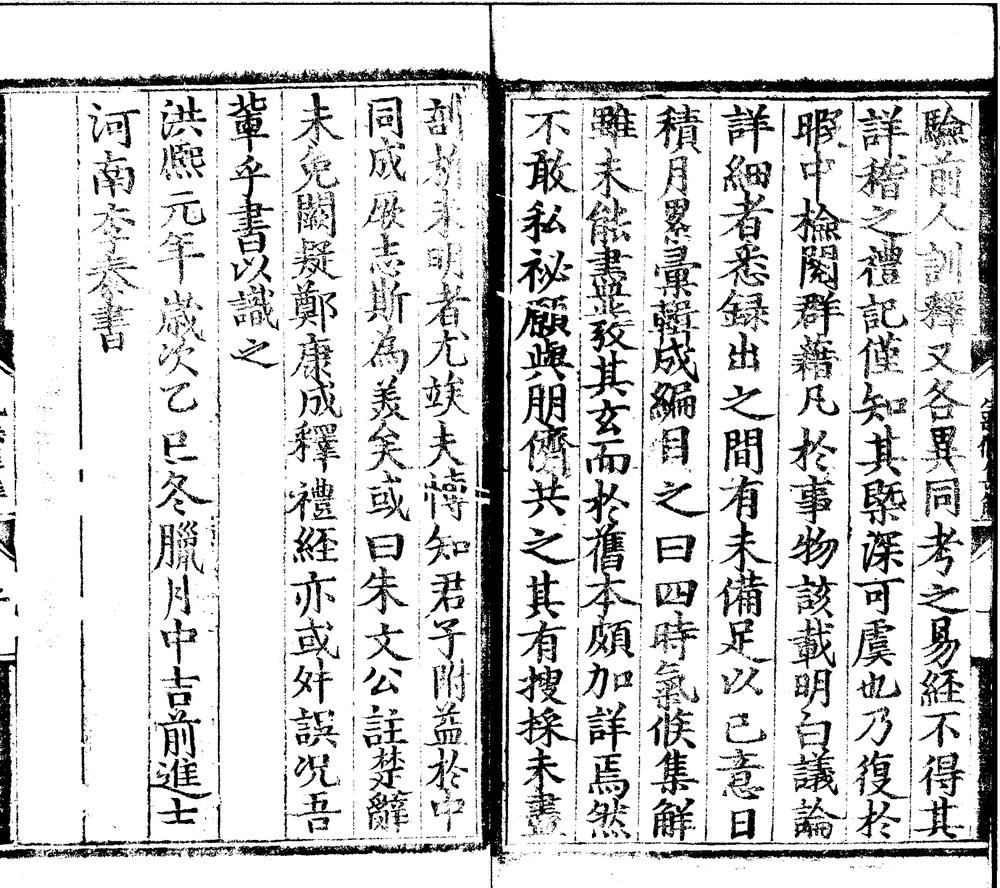 驗前人訓釋又各異同考之易経不得其
詳稽之禮記僅知其槩深可虞也乃復於
暇中檢閱群藉凡於事物該載明白議論
詳細者悉録出之間有未備足以已意日
積月累彚輯成編目之曰四時氣候集觧
雖未能盡斅其玄而於舊本頗加詳焉然
不敢私祕願與朋儕共之其有搜採未盡
剖析未明者尤竢夫愽知君子附益於中
同成厥志斯為羙矣或曰朱文公註楚辭
未免闕疑鄭康成釋禮経亦或舛誤况吾
軰乎書以識之
洪熈元年歲次乙巳冬臘月中吉前進士
河南李泰書